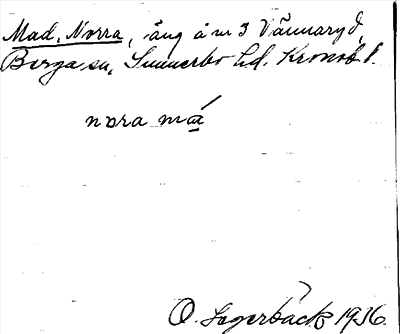 Mad, Norra, äng å nr 3 Vännaryd,
Berga sn, Sunnerbo hd. Kronob. l.
nora má
O. Lagerbäck 1936.